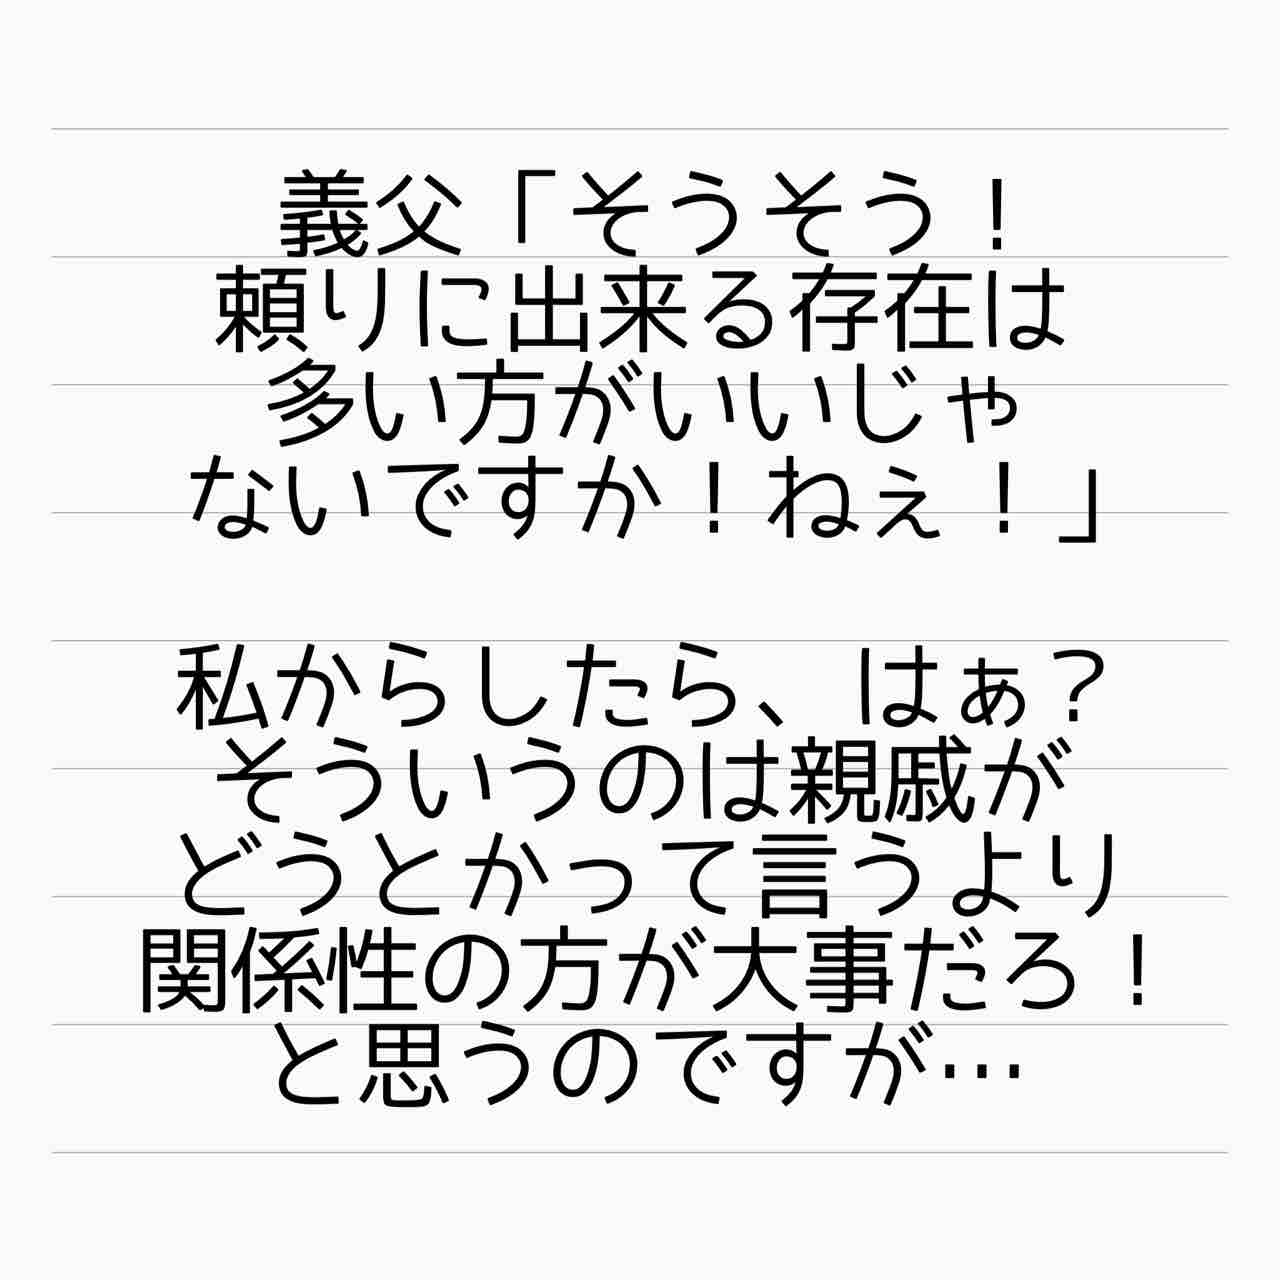 義父「そうそう！
頼りに出来る存在は
多い方がいいじゃ
ないですか！ねぇ！」
私からしたら、はぁ？
そういうのは親戚が
どうとかって言うより
関係性の方が大事だろ！
と思うのですが…